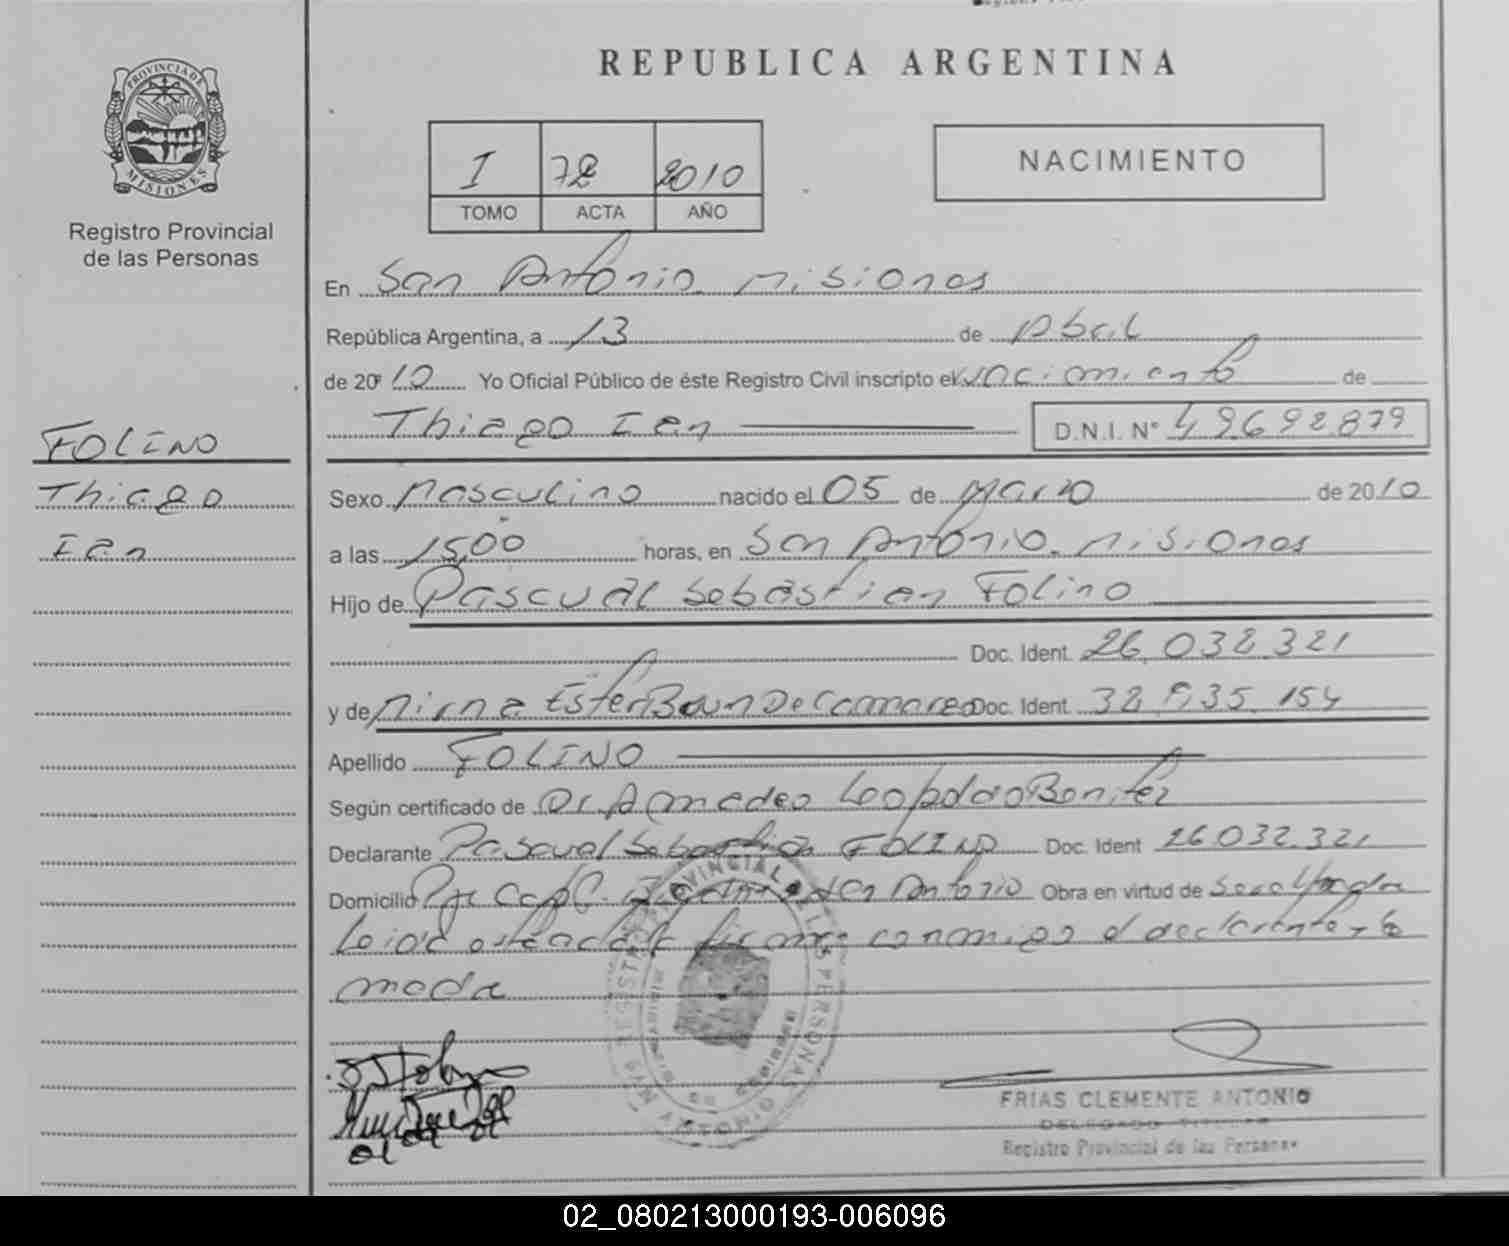 REPUBLICA ARGENTINA
PROVINCIA DE
MISIONES
Registro Provincial
de las Personas
I 72 2010
TOMO ACTA AÑO
NACIMIENTO
En San Antonio. Misiones
República Argentina, a 13 de Abril
de 2010 Yo Oficial Público de éste Registro Civil inscripto el nacimiento de
Thiago Ian D.N.I. N° 49692879
FOLINO
Thiago
Ian
Sexo Masculino nacido el 05 de Marzo de 2010
a las 15,00 horas, en San Antonio. Misiones
Hijo de Pascual Sebastian Folino
Doc. Ident. 26.032.321
y de Mirna Ester Doc. Ident. 32.935.154
Apellido FOLINO
Según certificado de Dr. Amadeo Leopoldo Benitez
Declarante Pascual Sebastian FOLINO Doc. Ident 26.032.321
Domicilio San Antonio Obra en virtud de
Leida el acta firma conmigo el declarante y la
madre
REGISTRO PROVINCIAL DE LAS PERSONAS
SAN ANTONIO
FRIAS CLEMENTE ANTONIO
DELEGADO TITULAR
Registro Provincial de las Personas
02_080213000193-006096